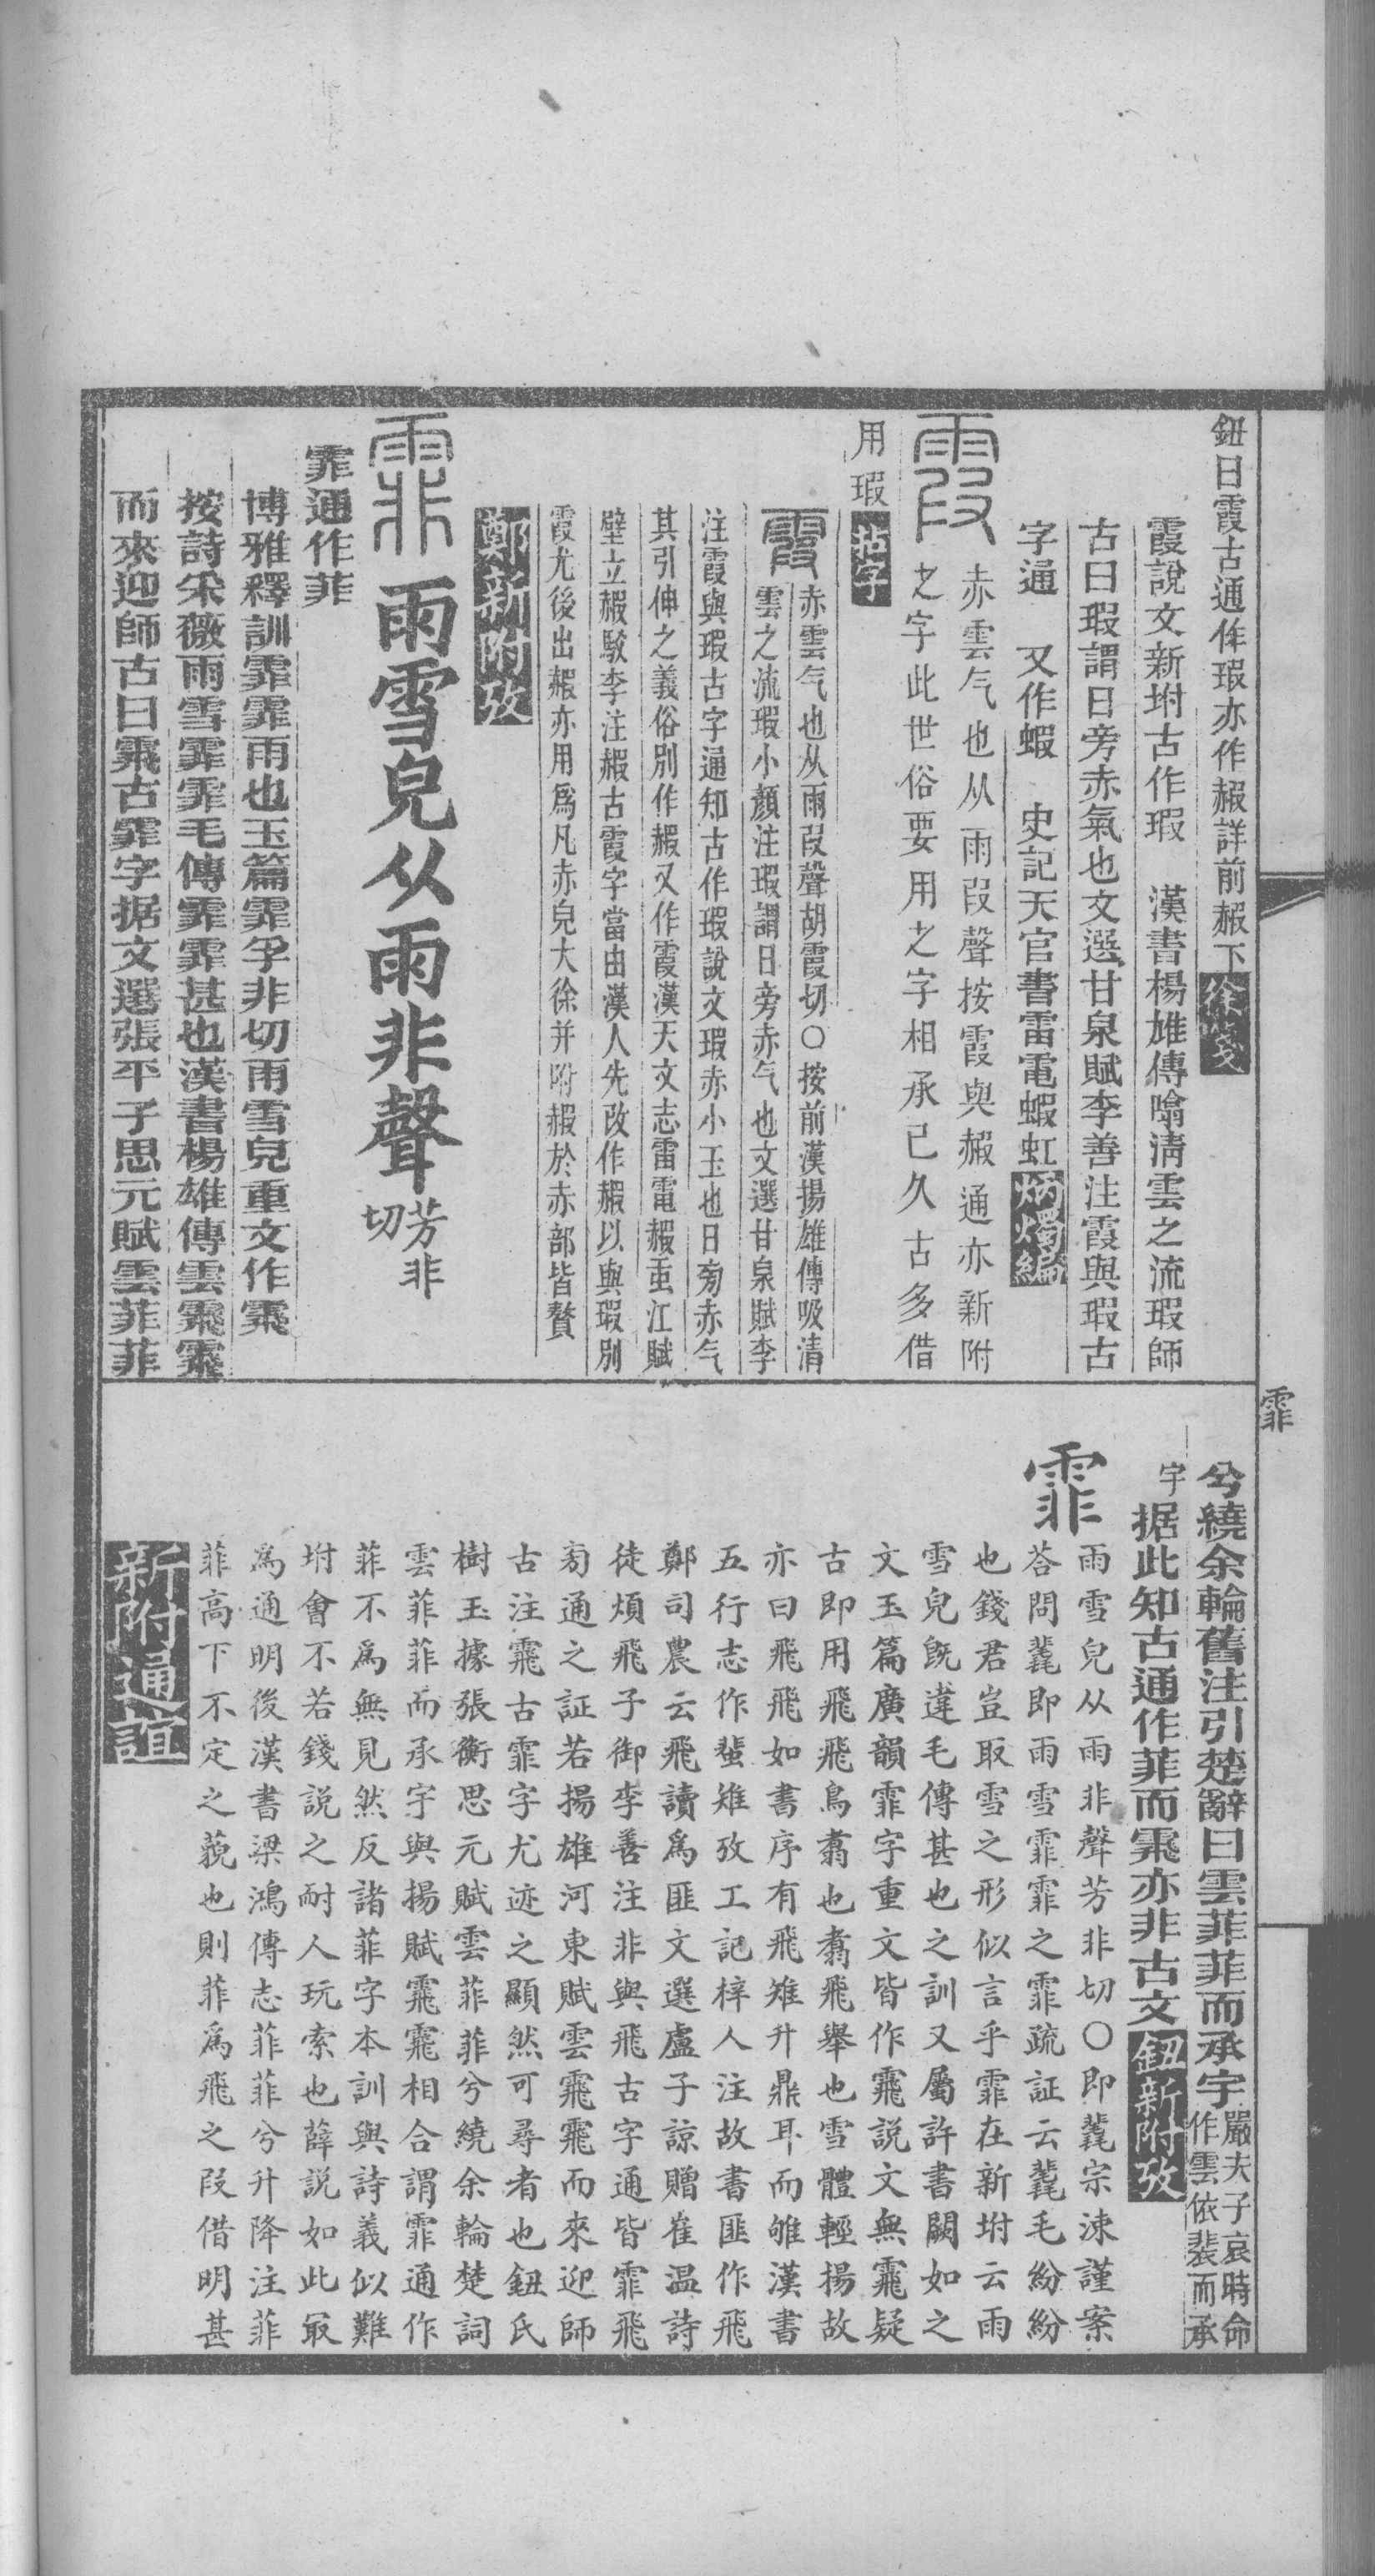 鈕曰霞古通作瑕亦作赮詳前赮下徐箋
霞說文新坿古作瑕　漢書楊雄傳噏淸雲之流瑕師
古曰瑕謂日旁赤氣也文選甘泉賦李善注霞與瑕古
字通　又作蝦　史記天官書雷電蝦虹炳燭編
霞赤雲气也从雨叚聲按霞與赮通亦新附
之字此世俗要用之字相承已久古多借
用瑕拈字
霞赤雲气也从雨叚聲胡霞切〇按前漢揚雄傳吸清
雲之流瑕小顏注瑕謂日旁赤气也文選甘泉賦李
注霞與瑕古字通知古作瑕說文瑕赤小玉也日旁赤气
其引伸之義俗別作赮又作霞漢天文志雷電赮䖝江賦
壁立赮駮李注赮古霞字當由漢人先改作赮以與瑕別
霞尤後出赮亦用爲凡赤皃大徐并附赮於赤部皆贅
鄭新附攷
霏雨雪皃从雨非聲芳非切
霏通作菲
博雅釋訓霏霏雨也玉篇霏孚非切雨雪皃重文作䨾
按詩采薇雨雪霏霏毛傳霏霏甚也漢書楊雄傳雲䨾䨾
而來迎師古曰䨾古霏字据文選張平子思元賦雲菲菲
霏
兮繞余輪舊注引楚辭曰雲菲菲而承宇嚴夫子哀時命作雲依裴而承
宇据此知古通作菲而䨾亦非古文鈕新附攷
霏雨雪皃从雨非聲芳非切〇即氄宗涑謹案
荅問氄即雨雪霏霏之霏疏証云氄毛紛紛
也錢君豈取雪之形似言乎霏在新坿云雨
雪皃旣違毛傳甚也之訓又屬許書闕如之
文玉篇廣韻霏字重文皆作䨾説文無䨾疑
古即用飛飛鳥翥也翥飛舉也雪體輕揚故
亦曰飛飛如書序有飛雉升鼎耳而雊漢書
五行志作蜚雉攷工記梓人注故書匪作飛
鄭司農云飛讀爲匪文選盧子諒贈崔温詩
徒煩飛子御李善注非與飛古字通皆霏飛
㫄通之証若揚雄河東賦雲䨾䨾而來迎師
古注䨾古霏字尤迹之顯然可尋者也鈕氏
樹玉據張衡思元賦雲菲菲兮繞余輪楚詞
雲菲菲而承宇與揚賦䨾䨾相合謂霏通作
菲不爲無見然反諸菲字本訓與詩義似難
坿會不若錢説之耐人玩索也薛説如此㝡
爲通明後漢書梁鴻傳志菲菲兮升降注菲
菲高下不定之䫉也則菲爲飛之叚借明甚
新附通誼